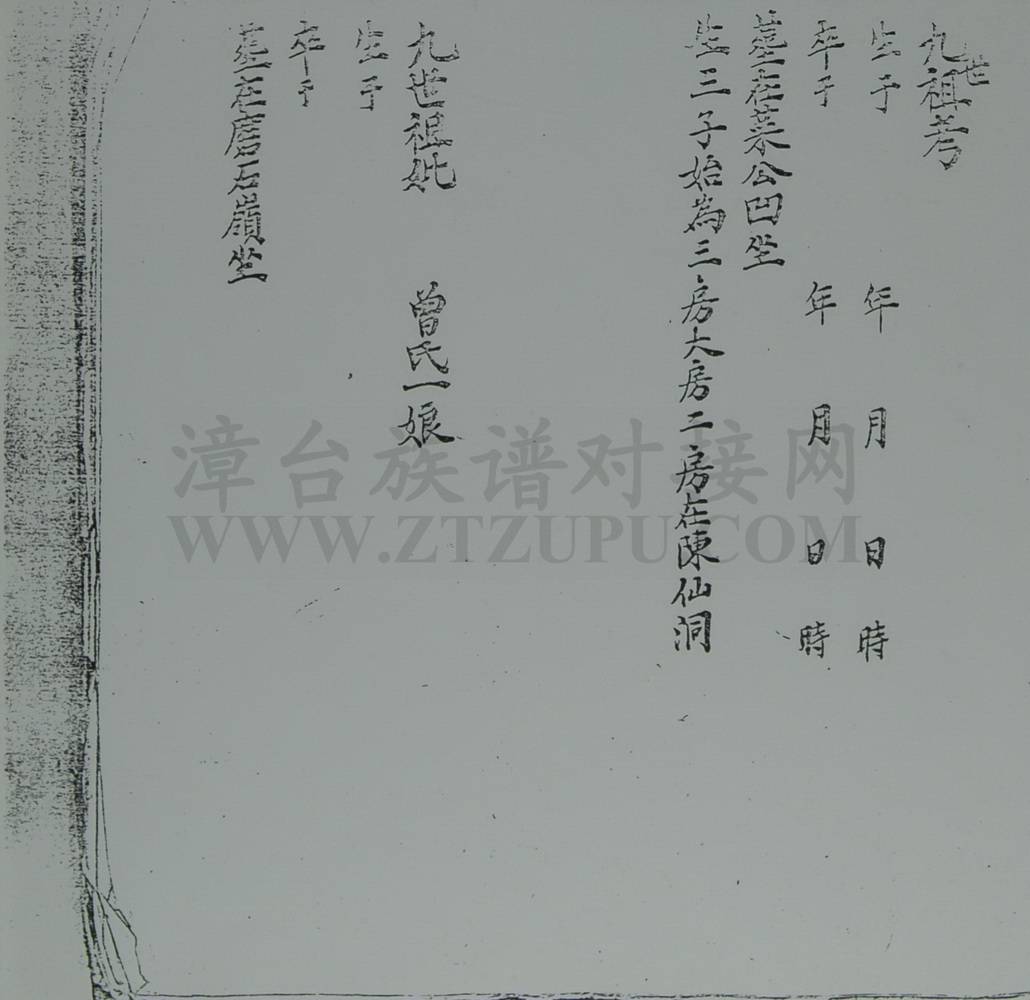 九世祖考
生于 年 月 日 時
卒于 年 月 日 時
墓在菜公凹坐
生三子始為三房大房二房在陳仙洞
九世祖妣 曾氏一娘
生于
卒于
墓在磨石嶺坐
漳台族谱对接网
WWW.ZTZUPU.COM